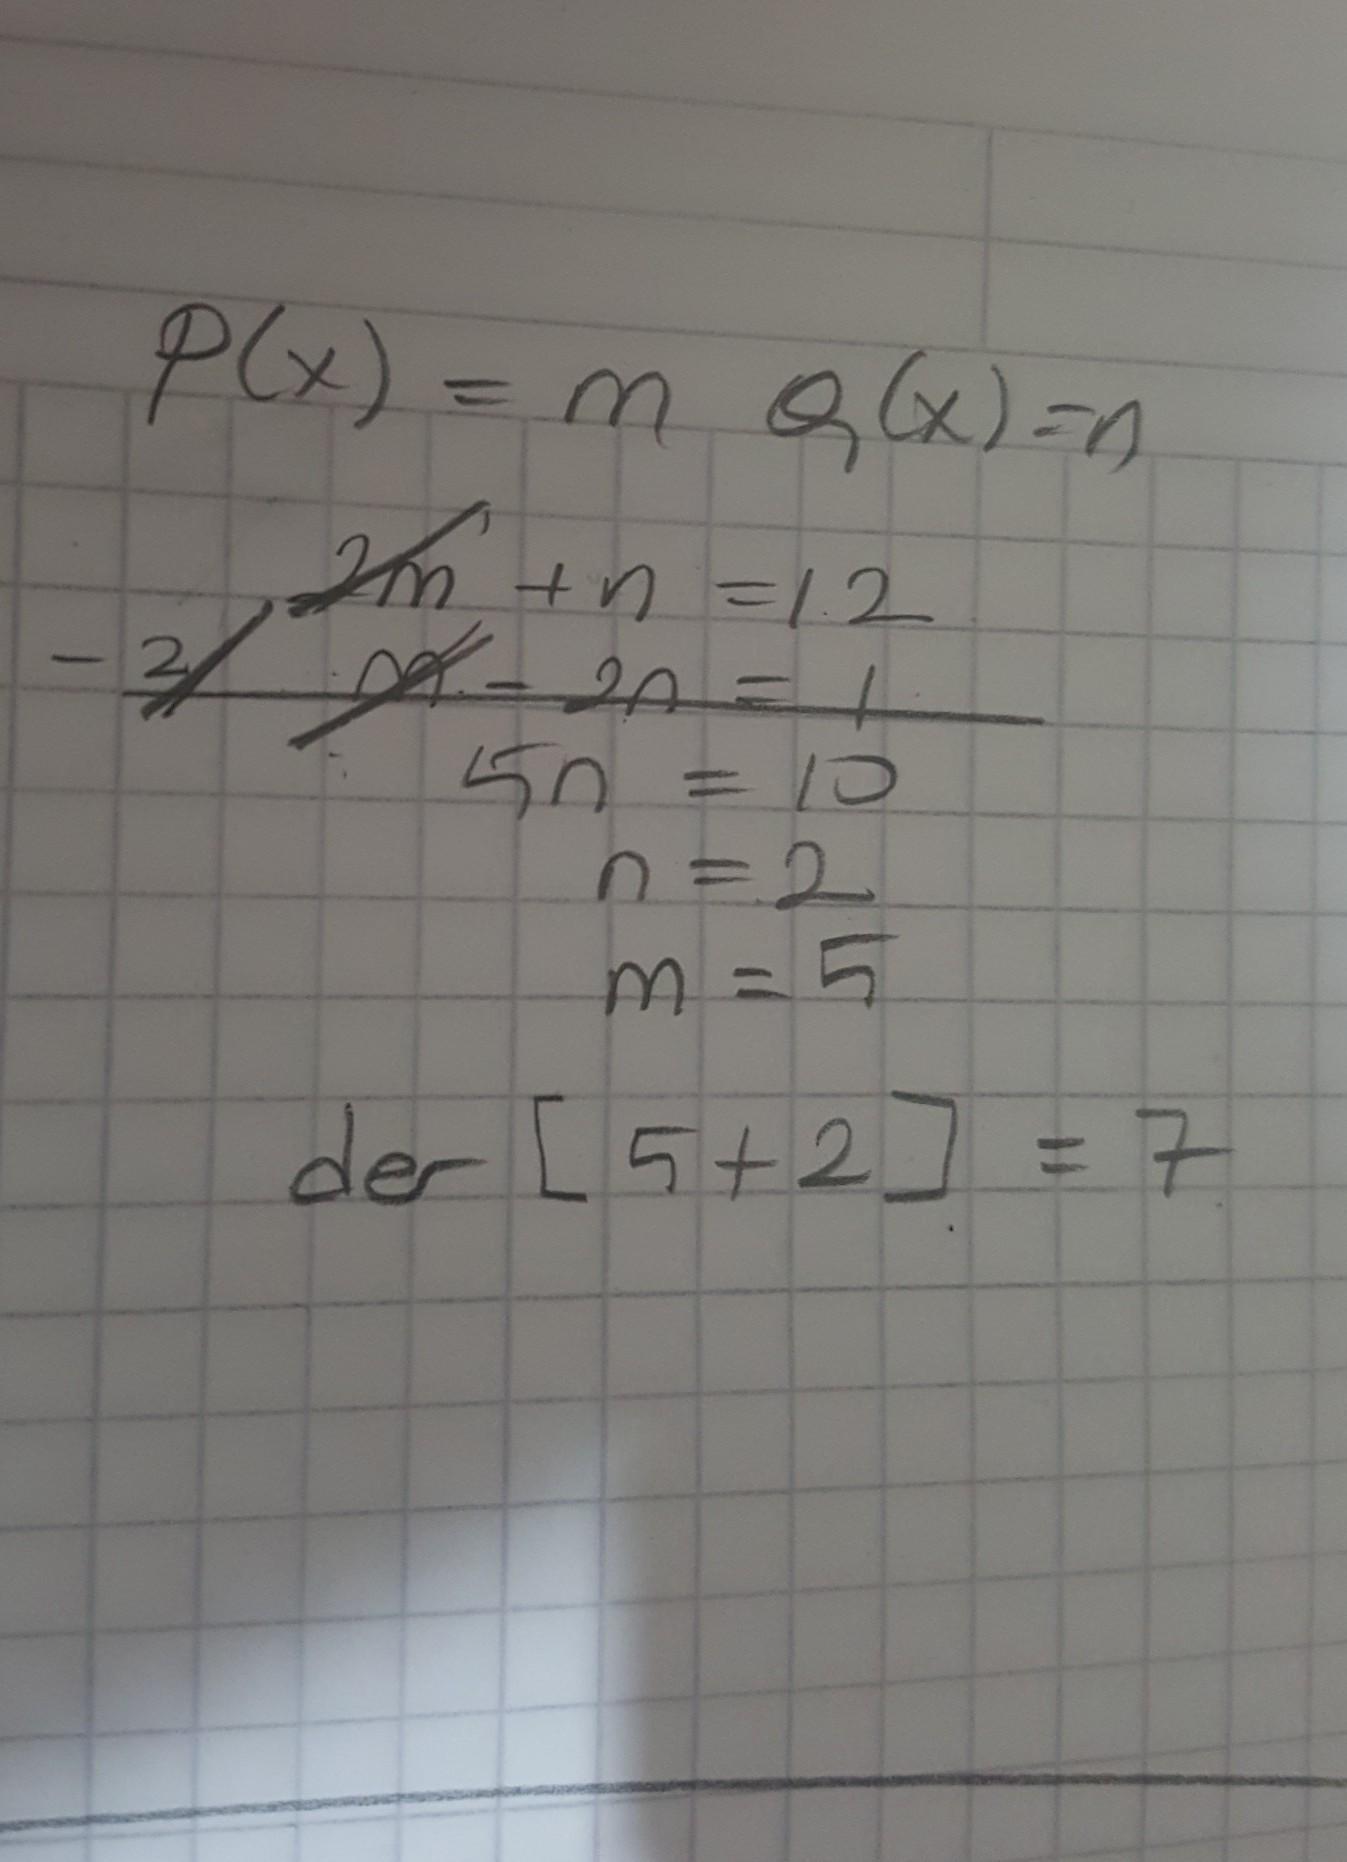 P(x) = m Q(x) = n
2m + n = 12
-2/ m - 2n = 1
5n = 10
n = 2
m = 5
der [5+2] = 7